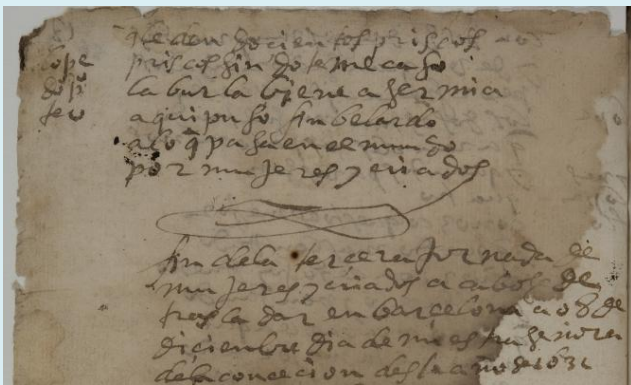 q̄ le devo docientos priscos
lope priscos sin dote me caso
do p̄ la burla biene a ser mia
feo aqui puso fin belardo
a lo q̄ pasa en el mundo
por mujeres y criados
fin dela tercera Jornada de
mujeres y criados acabose de
trasladar en barcelona a 8 de
diciembre dia de nuestra señora
dela concecion deste año de 1631